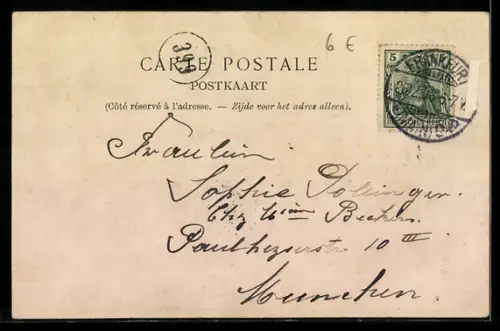 6 €
399
CARTE POSTALE
POSTKAART
(Côté réservé à l'adresse. — Zijde voor het adres alleen).
5
FRANKFURT
Fräulein
Sophie Dölinger.
Chez
Paulheysestr 10 III
Muenchen.